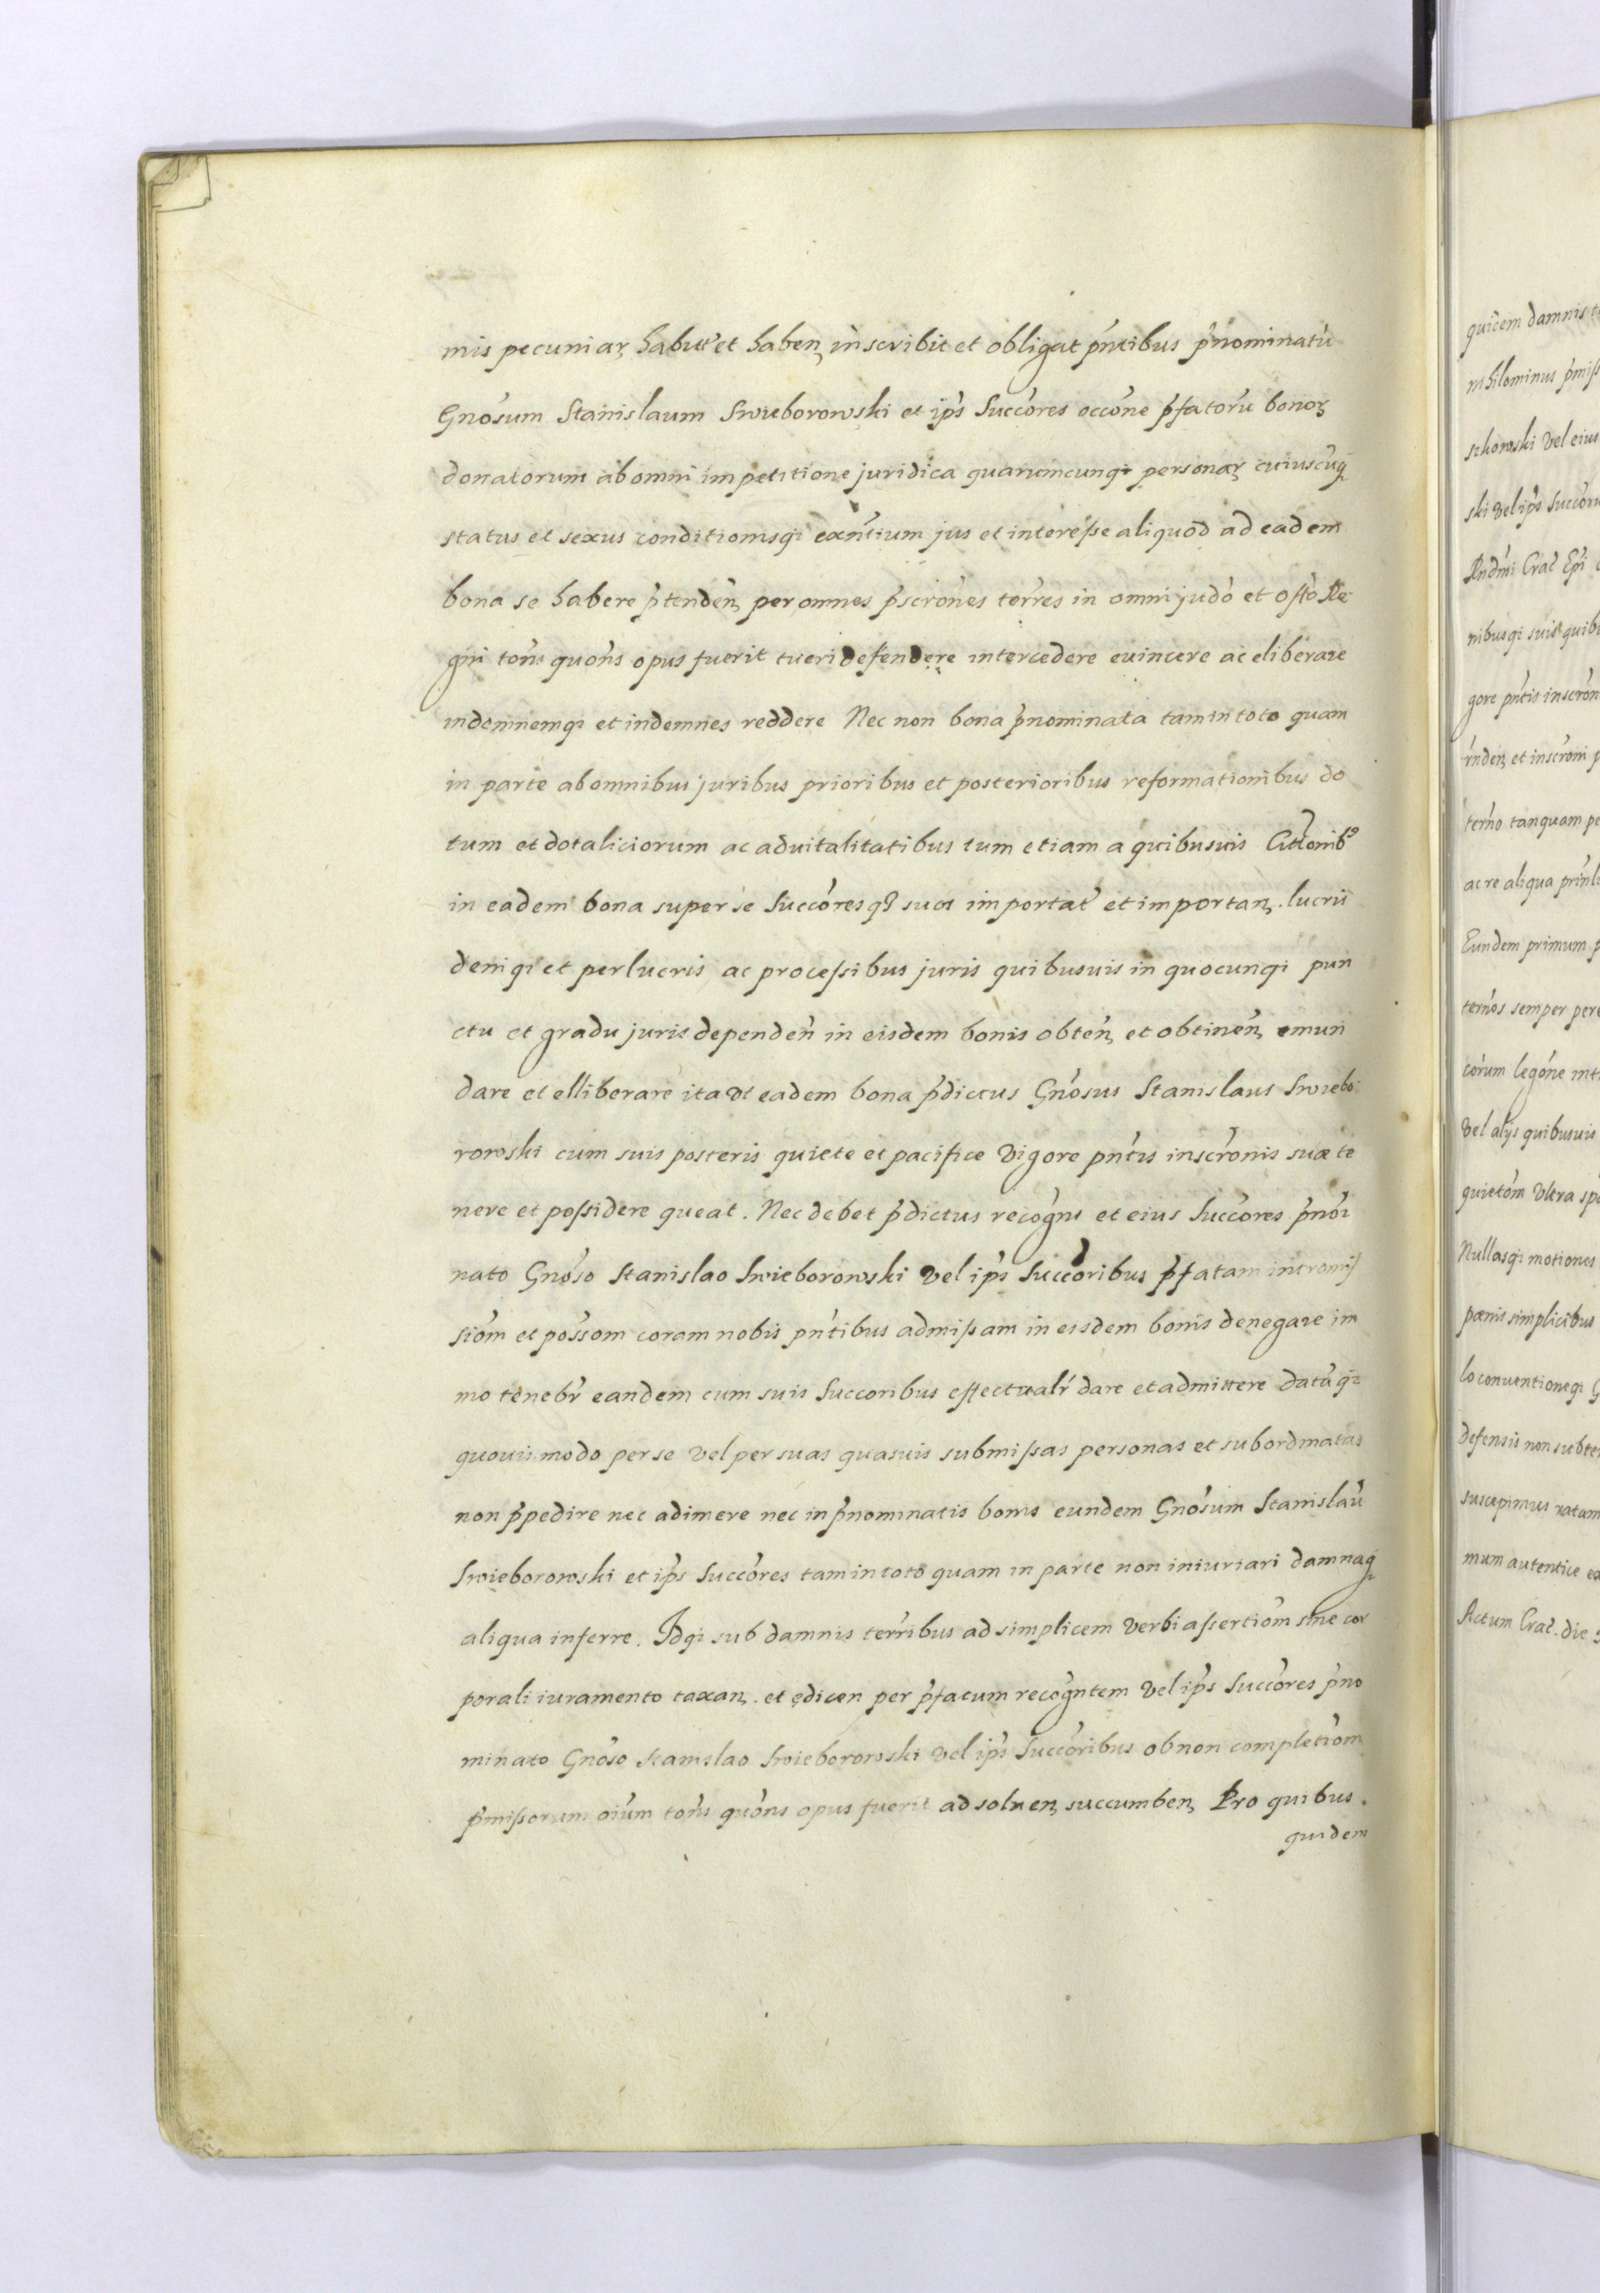 mis pecuniaꝝ habit̃ et haben̄ inscribit et obligat pñtibus p̃nominatũ
Gnõsum Stanislaum Swieborowski et ip̃s Succõres occõne p̃fatorũ bonoꝝ
donatorum ab omni impetitione juridica quarumcunqꝫ personaꝝ cuiuscũqꝫ
status et sexus conditionisqꝫ exñtium jus et interesse aliquod ad eadem
bona se habere p̃tenden̄ per omnes p̃scrõnes terr̃es in omni judõ et offõ Re
gni tõns quõns opus fuerit tueri defendere intercedere euincere ac eliberare
indemnemqꝫ et indemnes reddere Nec non bona p̃nominata tam in toto quam
in parte ab omnibus juribus prioribus et posterioribus reformationibus do
tum et dotaliciorum ac aduitalitatibus tum etiam a quibusuis
in eadem bona super se Succõresqꝫ suos importat̃ et importan̄. lucris
deniqꝫ et perlucris, ac processibus juris quibusuis in quocunqꝫ pun
ctu et gradu juris dependeñ in eisdem bonis obten̄ et obtinen̄ emun
dare et elliberare ita vt eadem bona p̃dictus Gnõsus Stanislaus Swiebo
rowski cum suis posteris quiete et pacifice vigore pñtis inscrõnis suæ te
nere et possidere queat. Nec debet p̃dictus recogñs et eius Succõres p̃nõi
nato Gnõso Stanislao Swieborowski vel ip̃s Succõribus p̃fatam intromis
siõm et possõm coram nobis pñtibus admissam in eisdem bonis denegare im
mo tenebr̃ eandem cum suis Succoribus effectualr̃ dare et admittere datãqꝫ
quouis modo per se vel per suas quasuis submissas personas et subordinatas
non p̃pedire nec adimere nec in p̃nominatis bonis eundem Gnõsum Stanislaũ
Swieborowski et ip̃s Succõres tam in toto quam in parte non iniuriari damnaqꝫ
aliqua inferre. Idqꝫ sub damnis terr̃ibus ad simplicem verbi assertiõm sine cor
porali iuramento taxan̄. et edicen per p̃fatum recogñtem vel ip̃s Succõres p̃no
minato Gnõso Stanislao Swieborowski vel ip̃s Succõribus ob non completiõm
p̃missorum oĩum tõns quõns opus fuerit ad soluen̄ succumben̄ Pro quibus.
quidem
quidem damnis
nihilominus p̃miss
vel eius
ski vel ip̃s Succõr
Rndm̃i Crac̃ Ep̃i
nibusqꝫ suis quibu
gore pñtis inscrõn
et inscrõni p
terr̃o tanquam pe
ac re aliqua
Eundem primum p
terr̃os semper pere
int
vel alÿs quibusuis
quietõm vltra
Nullasqꝫ motiones
pænis simplicibus
lo conuentioneqꝫ G
defensis non subter
suscepimus ratam
mum autentice
Actum Crac̃. die